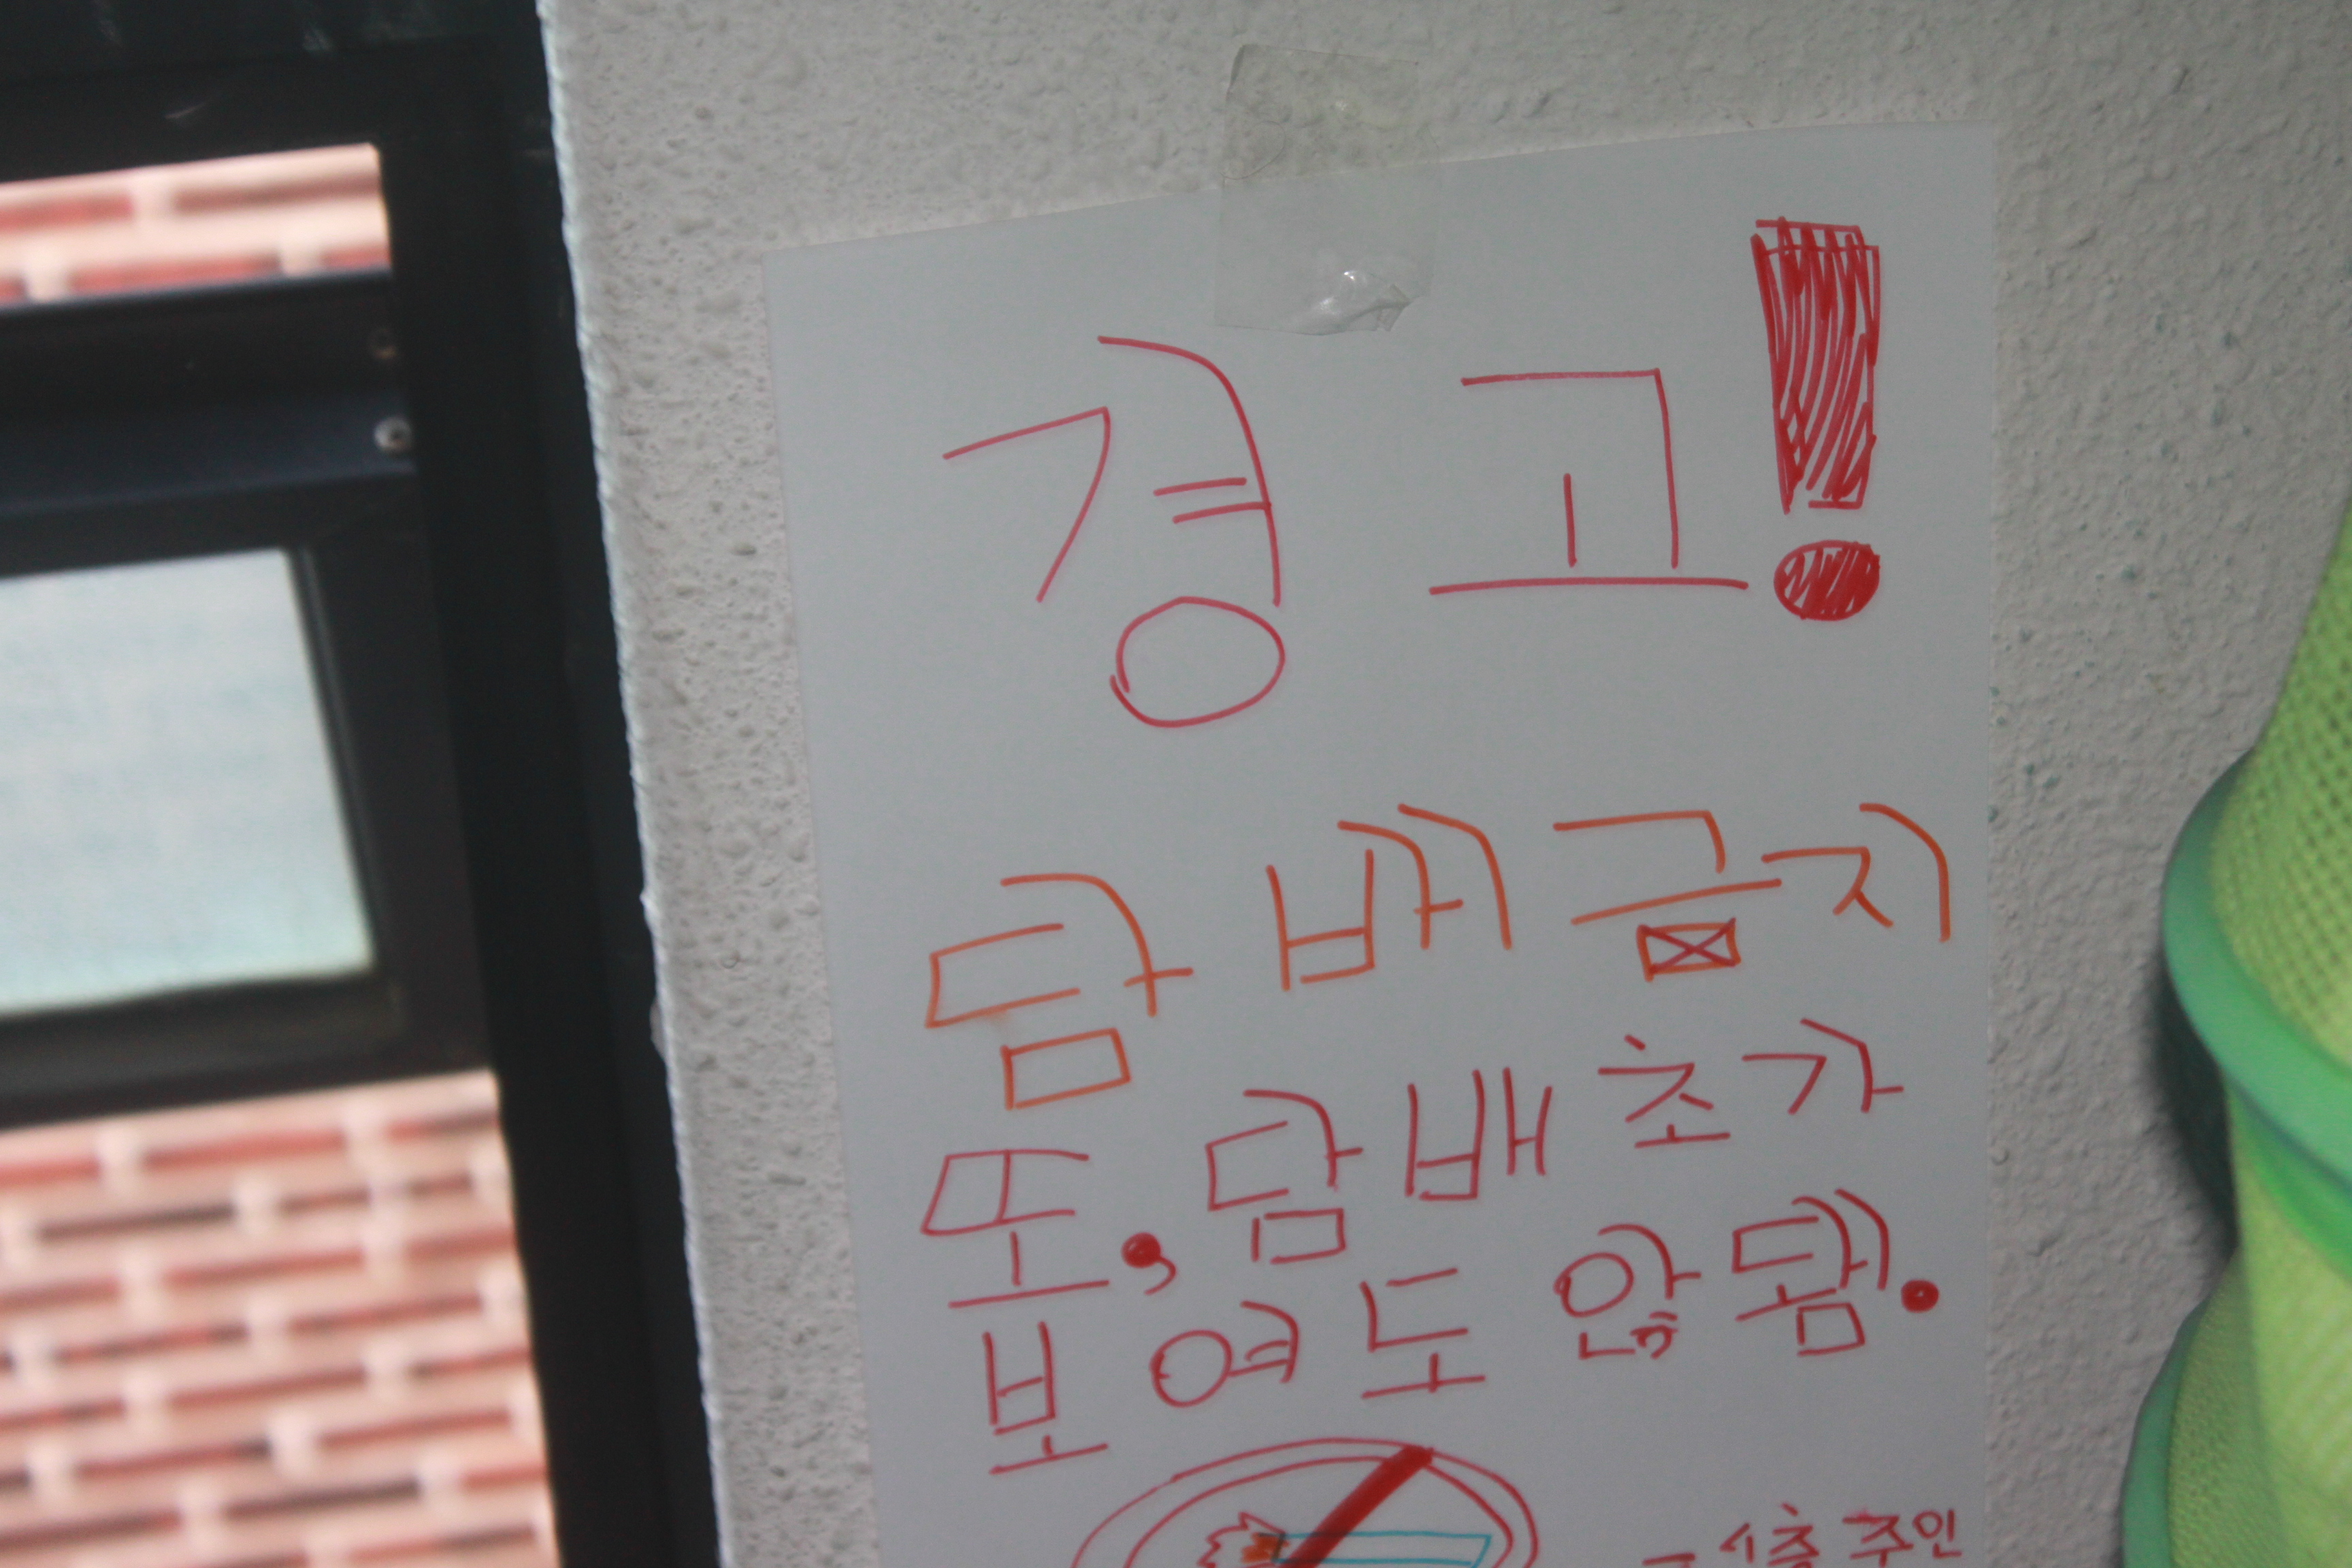 경고!
담배금지
또, 담배초가
보여도 않됌.
- 4층 주인